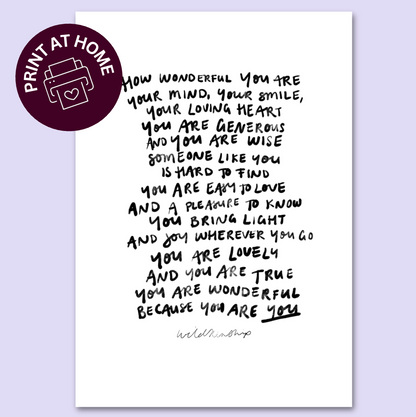 PRINT AT HOME
HOW WONDERFUL YOU ARE
YOUR MIND, YOUR SMILE,
YOUR LOVING HEART
YOU ARE GENEROUS
AND YOU ARE WISE
SOMEONE LIKE YOU
IS HARD TO FIND
YOU ARE EASY TO LOVE
AND A PLEASURE TO KNOW
YOU BRING LIGHT
AND JOY WHEREVER YOU GO
YOU ARE LOVELY
AND YOU ARE TRUE
YOU ARE WONDERFUL
BECAUSE YOU ARE YOU